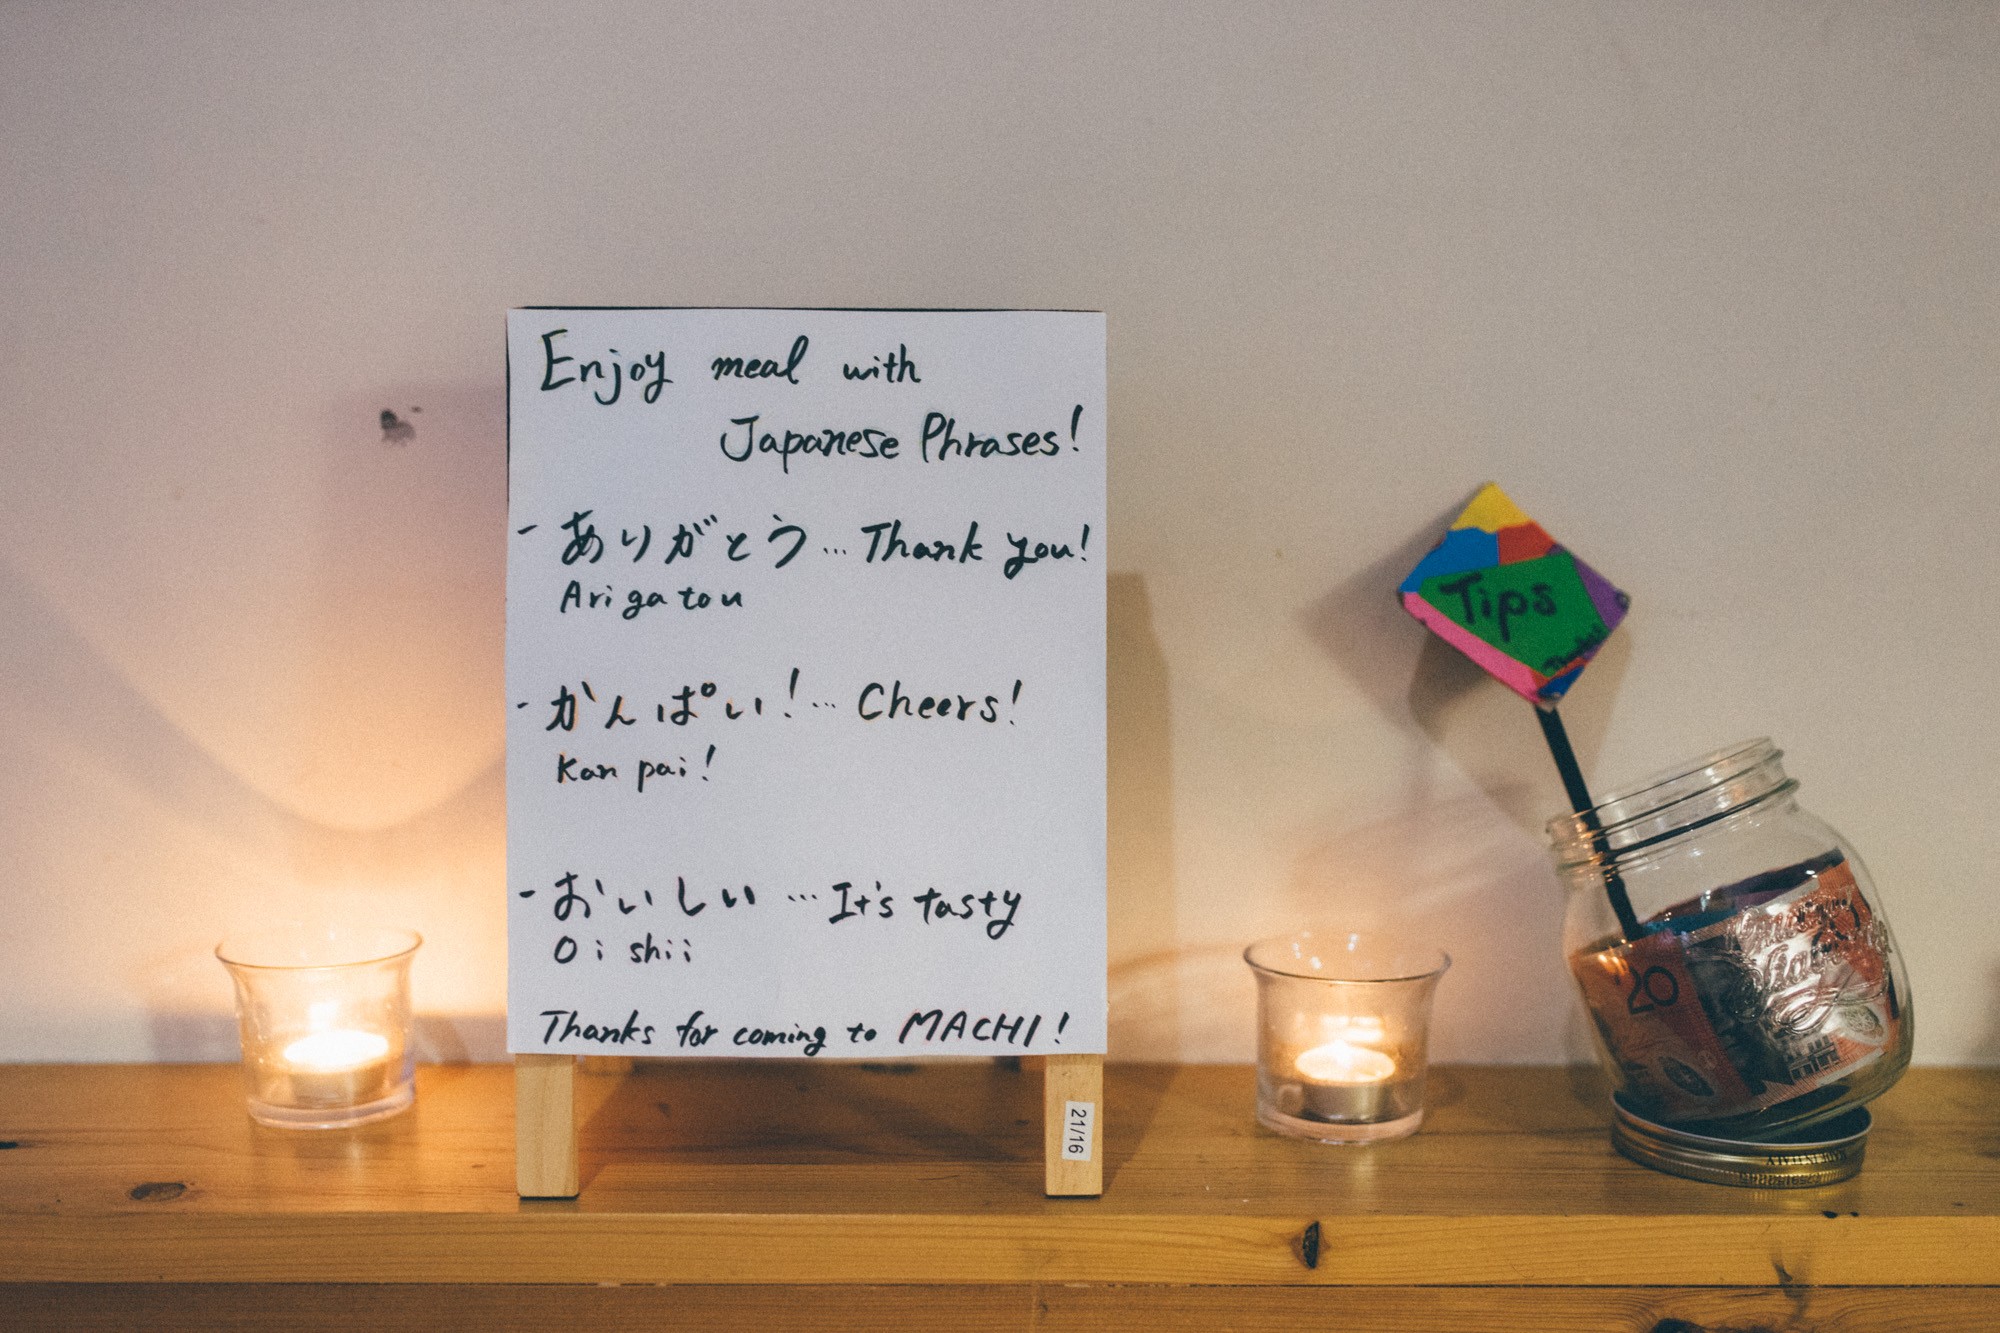 Enjoy meal with
Japanese Phrases!
- ありがとう... Thank you!
Arigatou
- かんぱい!... Cheers!
Kan pai!
- おいしい ... It's tasty
Oi shii
Thanks for coming to MACHI!
21/16
Tips
20